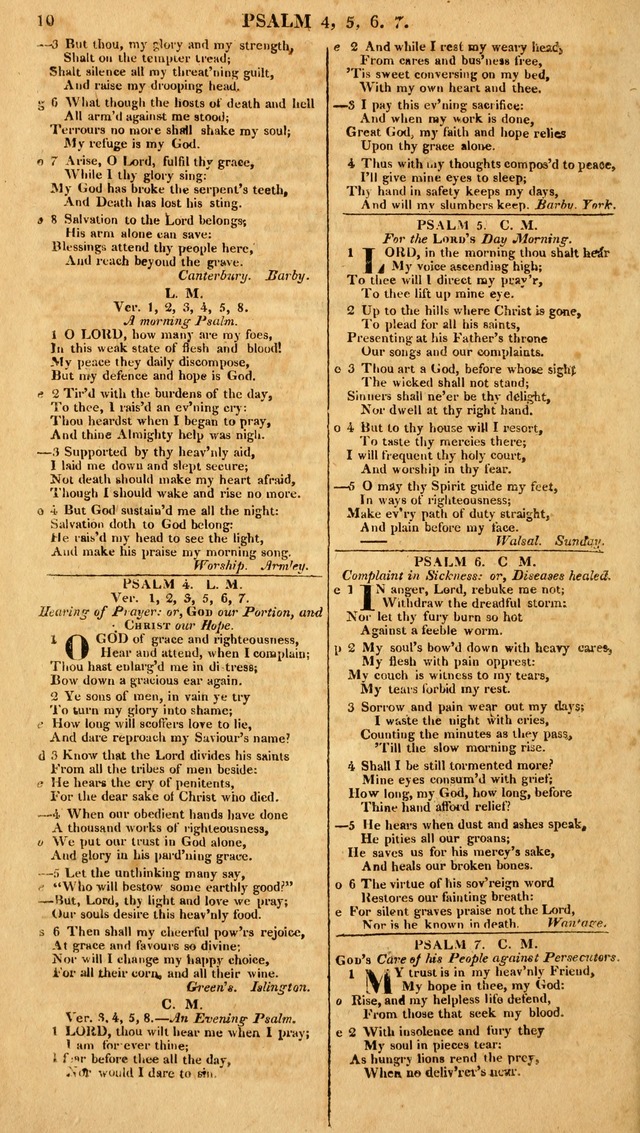 10
PSALM 4, 5, 6. 7.
—3 But thou, my glory and my strength,
Shalt on the tempter tread;
Shalt silence all my threat'ning guilt,
And raise my drooping head.
g 6 What though the hosts of death and hell
All arm'd against me stood;
Terrours no more shall shake my soul;
My refuge is my God.
o 7 Arise, O Lord, fulfil thy grace,
While I thy glory sing:
My God has broke the serpent's teeth,
And Death has lost his sting.
s 8 Salvation to the Lord belongs;
His arm alone can save:
Blessings attend thy people here,
And reach beyond the grave.
Canterbury. Barby.
L. M.
Ver. 1, 2, 3, 4, 5, 8.
A morning Psalm.
1 O LORD, how many are my foes,
In this weak state of flesh and blood!
My peace they daily discompose,
But my defence and hope is God.
e 2 Tir'd with the burdens of the day,
To thee, I rais'd an ev'ning cry:
Thou heardst when I began to pray,
And thine Almighty help was nigh.
—3 Supported by thy heav'nly aid,
I laid me down and slept secure;
Not death should make my heart afraid,
Though I should wake and rise no more.
o 4 But God sustain'd me all the night:
Salvation doth to God belong:
He rais'd my head to see the light,
And make his praise my morning song.
Worship. Armley.
PSALM 4. L. M.
Ver. 1, 2, 3, 5, 6, 7.
Hearing of Prayer: or, GOD our Portion, and
CHRIST our Hope.
1 O GOD of grace and righteousness,
Hear and attend, when I complain;
Thou hast enlarg'd me in distress;
Bow down a gracious ear again.
2 Ye sons of men, in vain ye try
To turn my glory into shame;
e How long will scoffers love to lie,
And dare reproach my Saviour's name?
d 3 Know that the Lord divides his saints
From all the tribes of men beside:
e He hears the cry of penitents,
For the dear sake of Christ who died.
—4 When our obedient hands have done
A thousand works of righteousness,
o We put our trust in God alone,
And glory in his pard'ning grace.
—5 Let the unthinking many say,
e "Who will bestow some earthly good?"
—But, Lord, thy light and love we pray;
Our souls desire this heav'nly food.
s 6 Then shall my cheerful pow'rs rejoice,
At grace and favours so divine;
Nor will I change my happy choice,
For all their corn, and all their wine.
Green's. Islington.
C. M.
Ver. 3, 4, 5, 8.—An Evening Psalm.
1 LORD, thou wilt hear me when I pray;
I am for ever thine;
I fear before thee all the day,
Nor would I dare to sin.
e 2 And while I rest my weary head,
From cares and bus'ness free,
'Tis sweet conversing on my bed,
With my own heart and thee.
—3 I pay this ev'ning sacrifice:
And when my work is done,
Great God, my faith and hope relies
Upon thy grace alone.
4 Thus with my thoughts compos'd to peace,
I'll give mine eyes to sleep;
Thy hand in safety keeps my days,
And will my slumbers keep. Barby. York.
PSALM 5. C. M.
For the LORD'S Day Morning.
1 LORD, in the morning thou shalt hear
My voice ascending high;
To thee will I direct my pray'r,
To thee lift up mine eye.
2 Up to the hills where Christ is gone,
To plead for all his saints,
Presenting at his Father's throne
Our songs and our complaints.
e 3 Thou art a God, before whose sight
The wicked shall not stand;
Sinners shall ne'er be thy delight,
Nor dwell at thy right hand.
o 4 But to thy house will I resort,
To taste thy mercies there;
I will frequent thy holy court,
And worship in thy fear.
—5 O may thy Spirit guide my feet,
In ways of righteousness;
Make ev'ry path of duty straight,
And plain before my face.
Walsal. Sunday.
PSALM 6. C M.
Complaint in Sickness: or, Diseases healed.
e 1 IN anger, Lord, rebuke me not;
Withdraw the dreadful storm:
Nor let thy fury burn so hot
Against a feeble worm.
p 2 My soul's bow'd down with heavy cares,
My flesh with pain opprest:
My couch is witness to my tears,
My tears forbid my rest.
3 Sorrow and pain wear out my days;
I waste the night with cries,
Counting the minutes as they pass,
'Till the slow morning rise.
4 Shall I be still tormented more?
Mine eyes consum'd with grief;
How long, my God, how long, before
Thine hand afford relief?
—5 He hears when dust and ashes speak,
He pities all our groans;
He saves us for his mercy's sake,
And heals our broken bones.
o 6 The virtue of his sov'reign word
Restores our fainting breath:
e For silent graves praise not the Lord,
Nor is he known in death. Wantage.
PSALM 7. C. M.
GOD'S Care of his People against Persecutors.
1 MY trust is in my heav'nly Friend,
My hope in thee, my God:
o Rise, and my helpless life defend,
From those that seek my blood.
e 2 With insolence and fury they
My soul in pieces tear:
As hungry lions rend the prey,
When no deliv'rer's near.